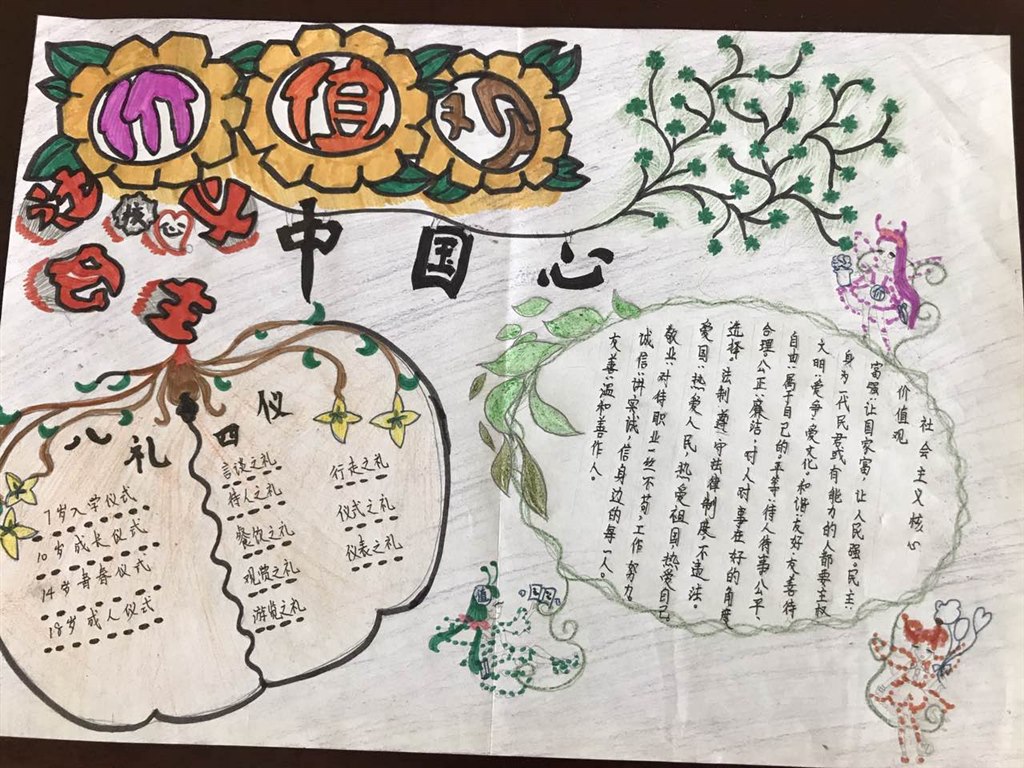 价值观
社会主义
核心
中国心
八礼四仪
7岁入学仪式
10岁成长仪式
14岁青春仪式
18岁成人仪式
言谈之礼
待人之礼
餐饮之礼
观赏之礼
游览之礼
行走之礼
仪式之礼
仪表之礼
社会主义核心
价值观
富强:让国家富,让人民强。民主:
身为一代民君或有能力的人都要主权
文明:爱争,爱文化。和谐:友好,友善待
自由:属于自己的。平等:待人待事公平、
合理。公正:廉洁,对人对事在好的角度
选择。法制:遵守法律制度,不违法。
爱国:热爱人民,热爱祖国,热爱自己
敬业:对待职业一丝不苟,工作努力。
诚信:讲实诚,信身边的每一人。
友善:温和善作人。
价
值